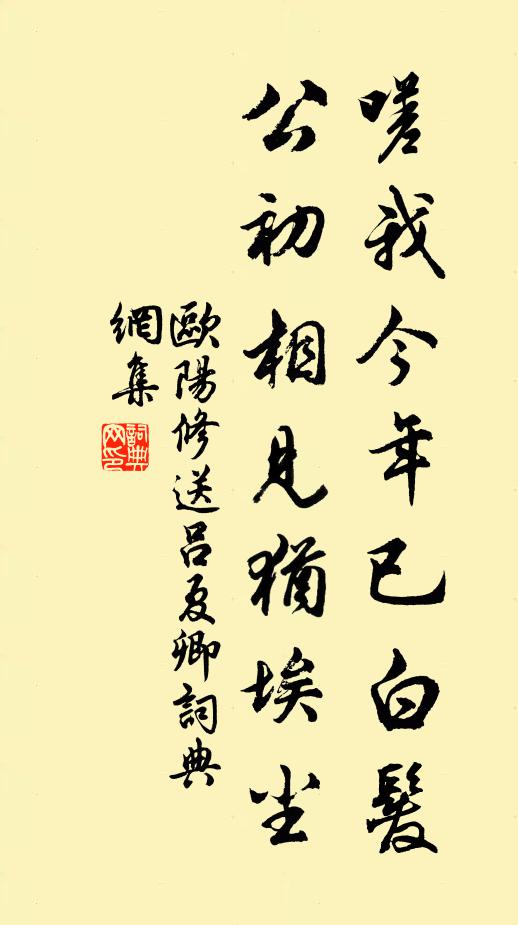 嗟我今年已白髮
公初相見猶埃尘
歐陽修送呂夏卿詞典
網集
詞典
网印